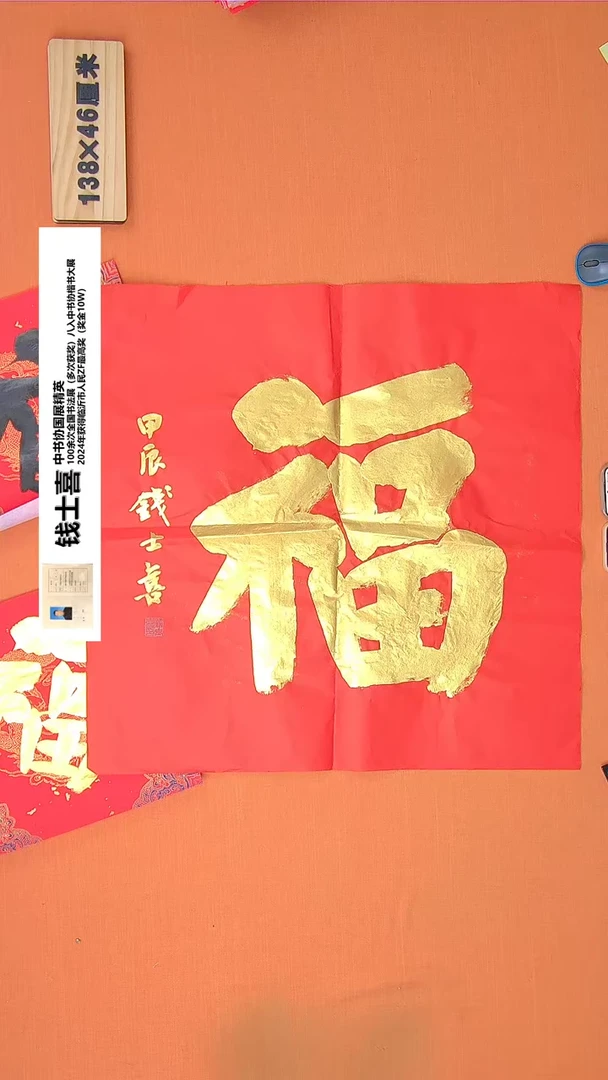 138×46厘米
钱士喜
中书协国展精英
100余次全国书法展（多次获奖）八入中书协楷书大展
2024年获得临沂市人民ZF最高奖（奖金10W）
福
甲辰钱士喜